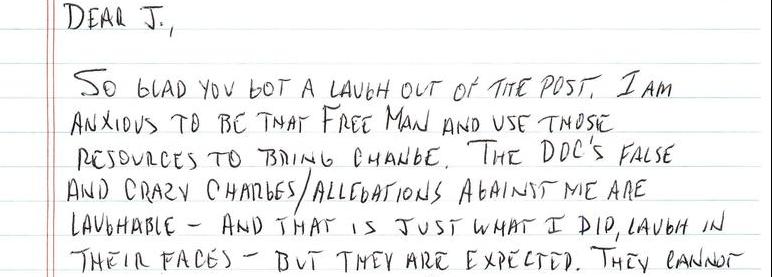 DEAR J.,
SO GLAD YOU GOT A LAUGH OUT OF THE POST. I AM
ANXIOUS TO BE THAT FREE MAN AND USE THOSE
RESOURCES TO BRING CHANGE. THE DOC'S FALSE
AND CRAZY CHARGES/ALLEGATIONS AGAINST ME ARE
LAUGHABLE – AND THAT IS JUST WHAT I DID, LAUGH IN
THEIR FACES – BUT THEY ARE EXPECTED. THEY CANNOT